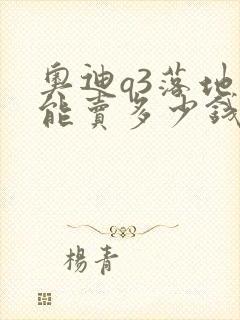 奥迪q3落地
能賣多少錢
楊青